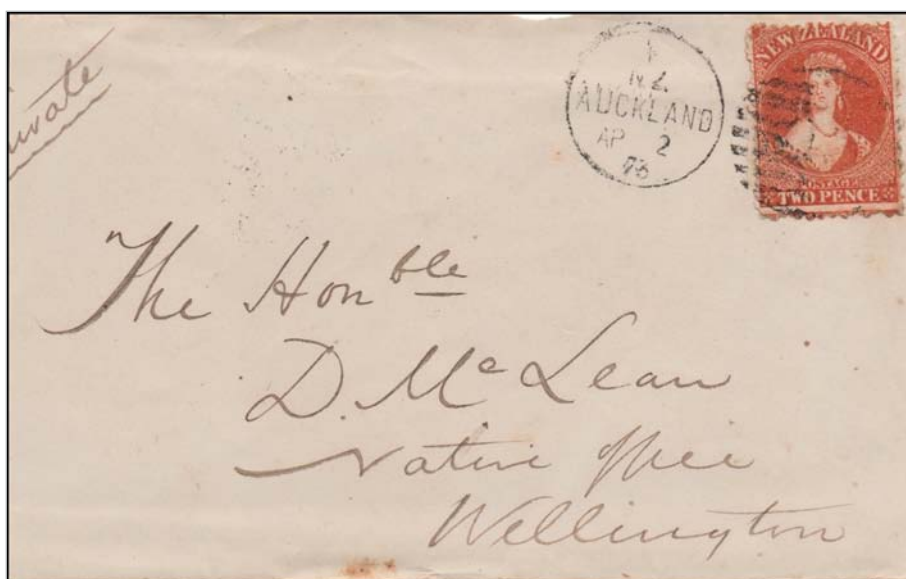 Private
N.Z.
AUCKLAND
AP 2
73
NEW ZEALAND
POSTAGE
TWO PENCE
The Honble
D. Mc Lean
Native Office
Wellington